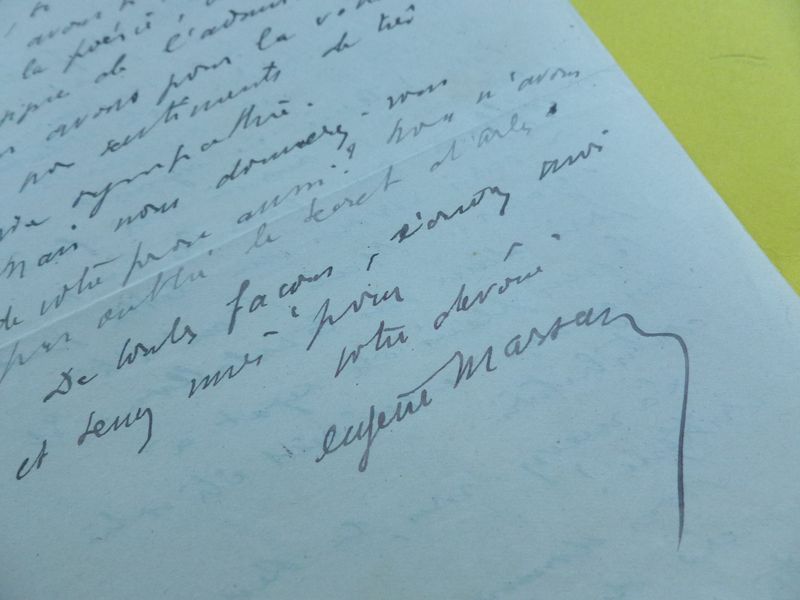 avons
la poésie,
de l'admi
avons pour la
nos sentiments de très
sympathie.
Mais nous donnerez-vous
de votre prose aussi? Nous n'avons
pas oublié le secret d'Arles.
De toutes façons,
et tenez moi pour
votre dévoué.
Eugène Marsan